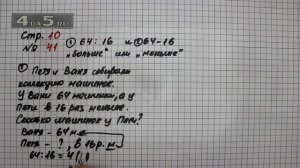 4DA5.RU
Стр. 10
№ 41
① 64:16 и ② 64-16
"больше" или "меньше"
① Петя и Ваня собирали
коллекцию машинок.
У Вани 64 машинки, а у
Пети в 16 раз меньше.
Сколько машинок у Пети?
Ваня - 64 м.
Петя - ?, в 16 р. м.
64:16=4